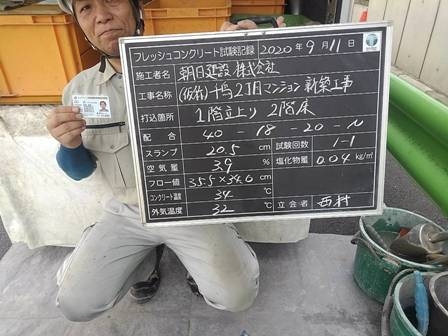 フレッシュコンクリート試験記録 2020年9月11日
施工者名 朝日建設株式会社
工事名称 (仮称)十弓2丁目マンション新築工事
打込箇所 1階立上り 2階床
配合 40-18-20-N
スランプ 20.5 cm 試験回数 1-1
空気量 3.9 % 塩化物量 0.04 kg/m³
フロー値 35.5×34.0 cm
コンクリート温度 34 ℃
外気温度 32 ℃ 立会者 西村